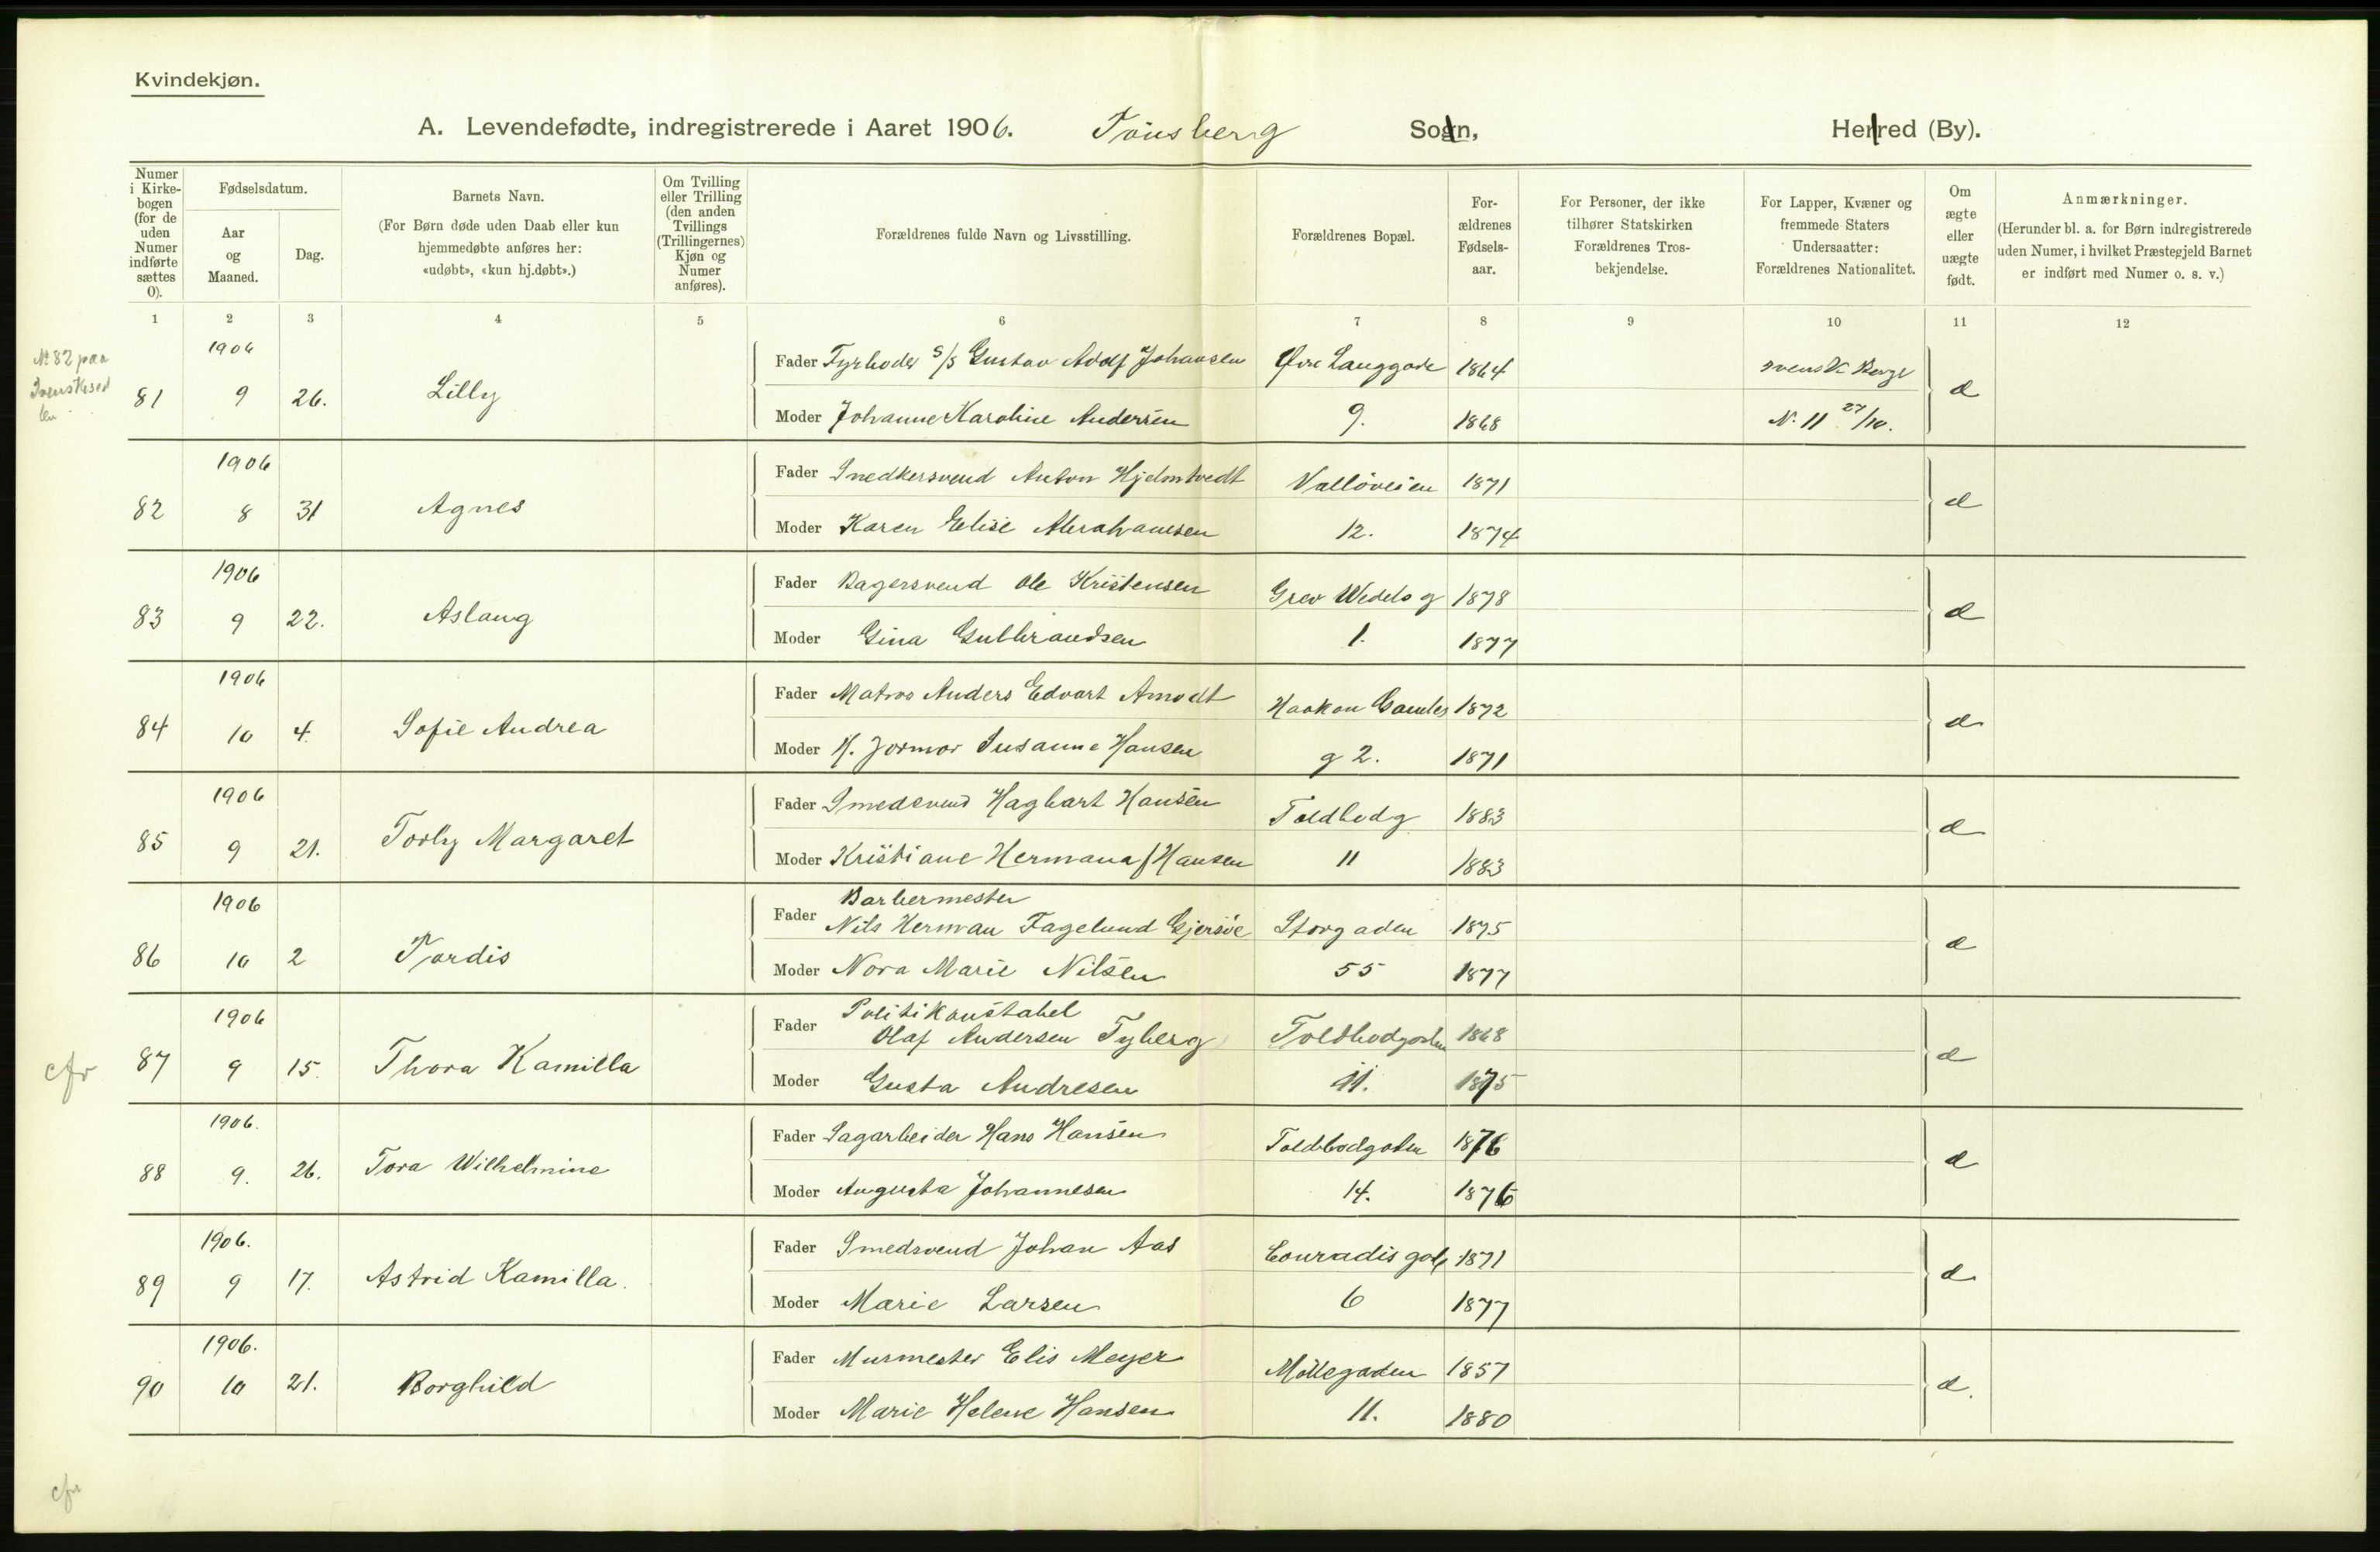 Kvindekjøn.
A. Levendefødte, indregistrerede i Aaret 1906. Tönsberg Sogn, Herred (By).
Numer i Kirkebogen (for de uden Numer indførte sættes 0).
Fødselsdatum.
Aar og Maaned.
Dag.
Barnets Navn.
(For Børn døde uden Daab eller kun hjemmedøbte anføres her: «udøbt», «kun hj.døbt».)
Om Tvilling eller Trilling (den anden Tvillings (Trillingernes) Kjøn og Numer anføres).
Forældrenes fulde Navn og Livsstilling.
Forældrenes Bopæl.
Forældrenes Fødselsaar.
For Personer, der ikke tilhører Statskirken Forældrenes Trosbekjendelse.
For Lapper, Kvæner og fremmede Staters Undersaatter: Forældrenes Nationalitet.
Om ægte eller uægte født.
Anmærkninger.
(Herunder bl. a. for Børn indregistrerede uden Numer, i hvilket Præstegjeld Barnet er indført med Numer o. s. v.)
1 2 3 4 5 6 7 8 9 10 11 12
No 82 paa
1906 Fader Fyrbøder S/S Gustav Adolf Johansen Øvre Langgade 1864 svensk
81 9 26. Lilly Moder Johanne Karoline Andersen 9. 1868 N. 11 27/10. æ
1906 Fader Snedkersvend Anton Hjelmtvedt Vallöveien 1871
82 8 31 Agnes Moder Karen Elise Abrahamsen 12. 1874 æ
1906 Fader Bagersvend Ole Kristensen Grev Wedels g 1878
83 9 22. Aslaug Moder Gina Gulbrandsen 1. 1877 æ
1906 Fader Matros Anders Edvart Amodt Haakon Gamles 1872
84 10 4. Sofie Andrea Moder H. Jormor Susanne Hansen g 2. 1871 æ
1906 Fader Smedsvend Hagbart Hansen Toldbodg 1883
85 9 21. Torly Margaret Moder Kristiane Hermana f Hansen 11 1883 æ
1906 Fader Barbermester
Nils Herman Fagelund Gjersöe Storgaden 1875
86 10 2 Tordis Moder Nora Marie Nilsen 55 1877 æ
1906 Fader Politikonstabel
Olaf Andersen Tyberg Toldbodgaden 1868
cfr 87 9 15. Thora Kamilla Moder Gusta Andresen 11. 1875 æ
1906. Fader Sagarbeider Hans Hansen Toldbodgaden 1876
88 9. 26. Tora Wilhelmine Moder Augusta Johannesen 14. 1876 æ
1906. Fader Smedsvend Johan Aas Conradis gade 1871
89 9 17. Astrid Kamilla. Moder Marie Larsen 6 1877 æ
1906. Fader Murmester Elis Meyer Möllegaden 1857
90 10 21. Borghild Moder Marie Helene Hansen 11. 1880 æ.
cfr